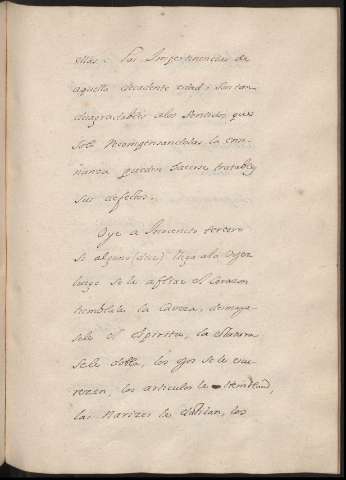 ellas: las Impertinencias de
aquella decadente edad, son tan
desagradables alos sentidos, que
solo recompensandolas la ense-
ñanza pueden hacerse tratables
sus defectos.
Oye a Inocencio tercero
si alguno (dice) llega ala vejez
luego se le aflixe el Corazon
tiemblale la caveza, desmaya-
sele el espiritu, la
se le dobla, los ojos se le escu-
rezen, los articulos le tiemblan,
las Narizes le destilan, los